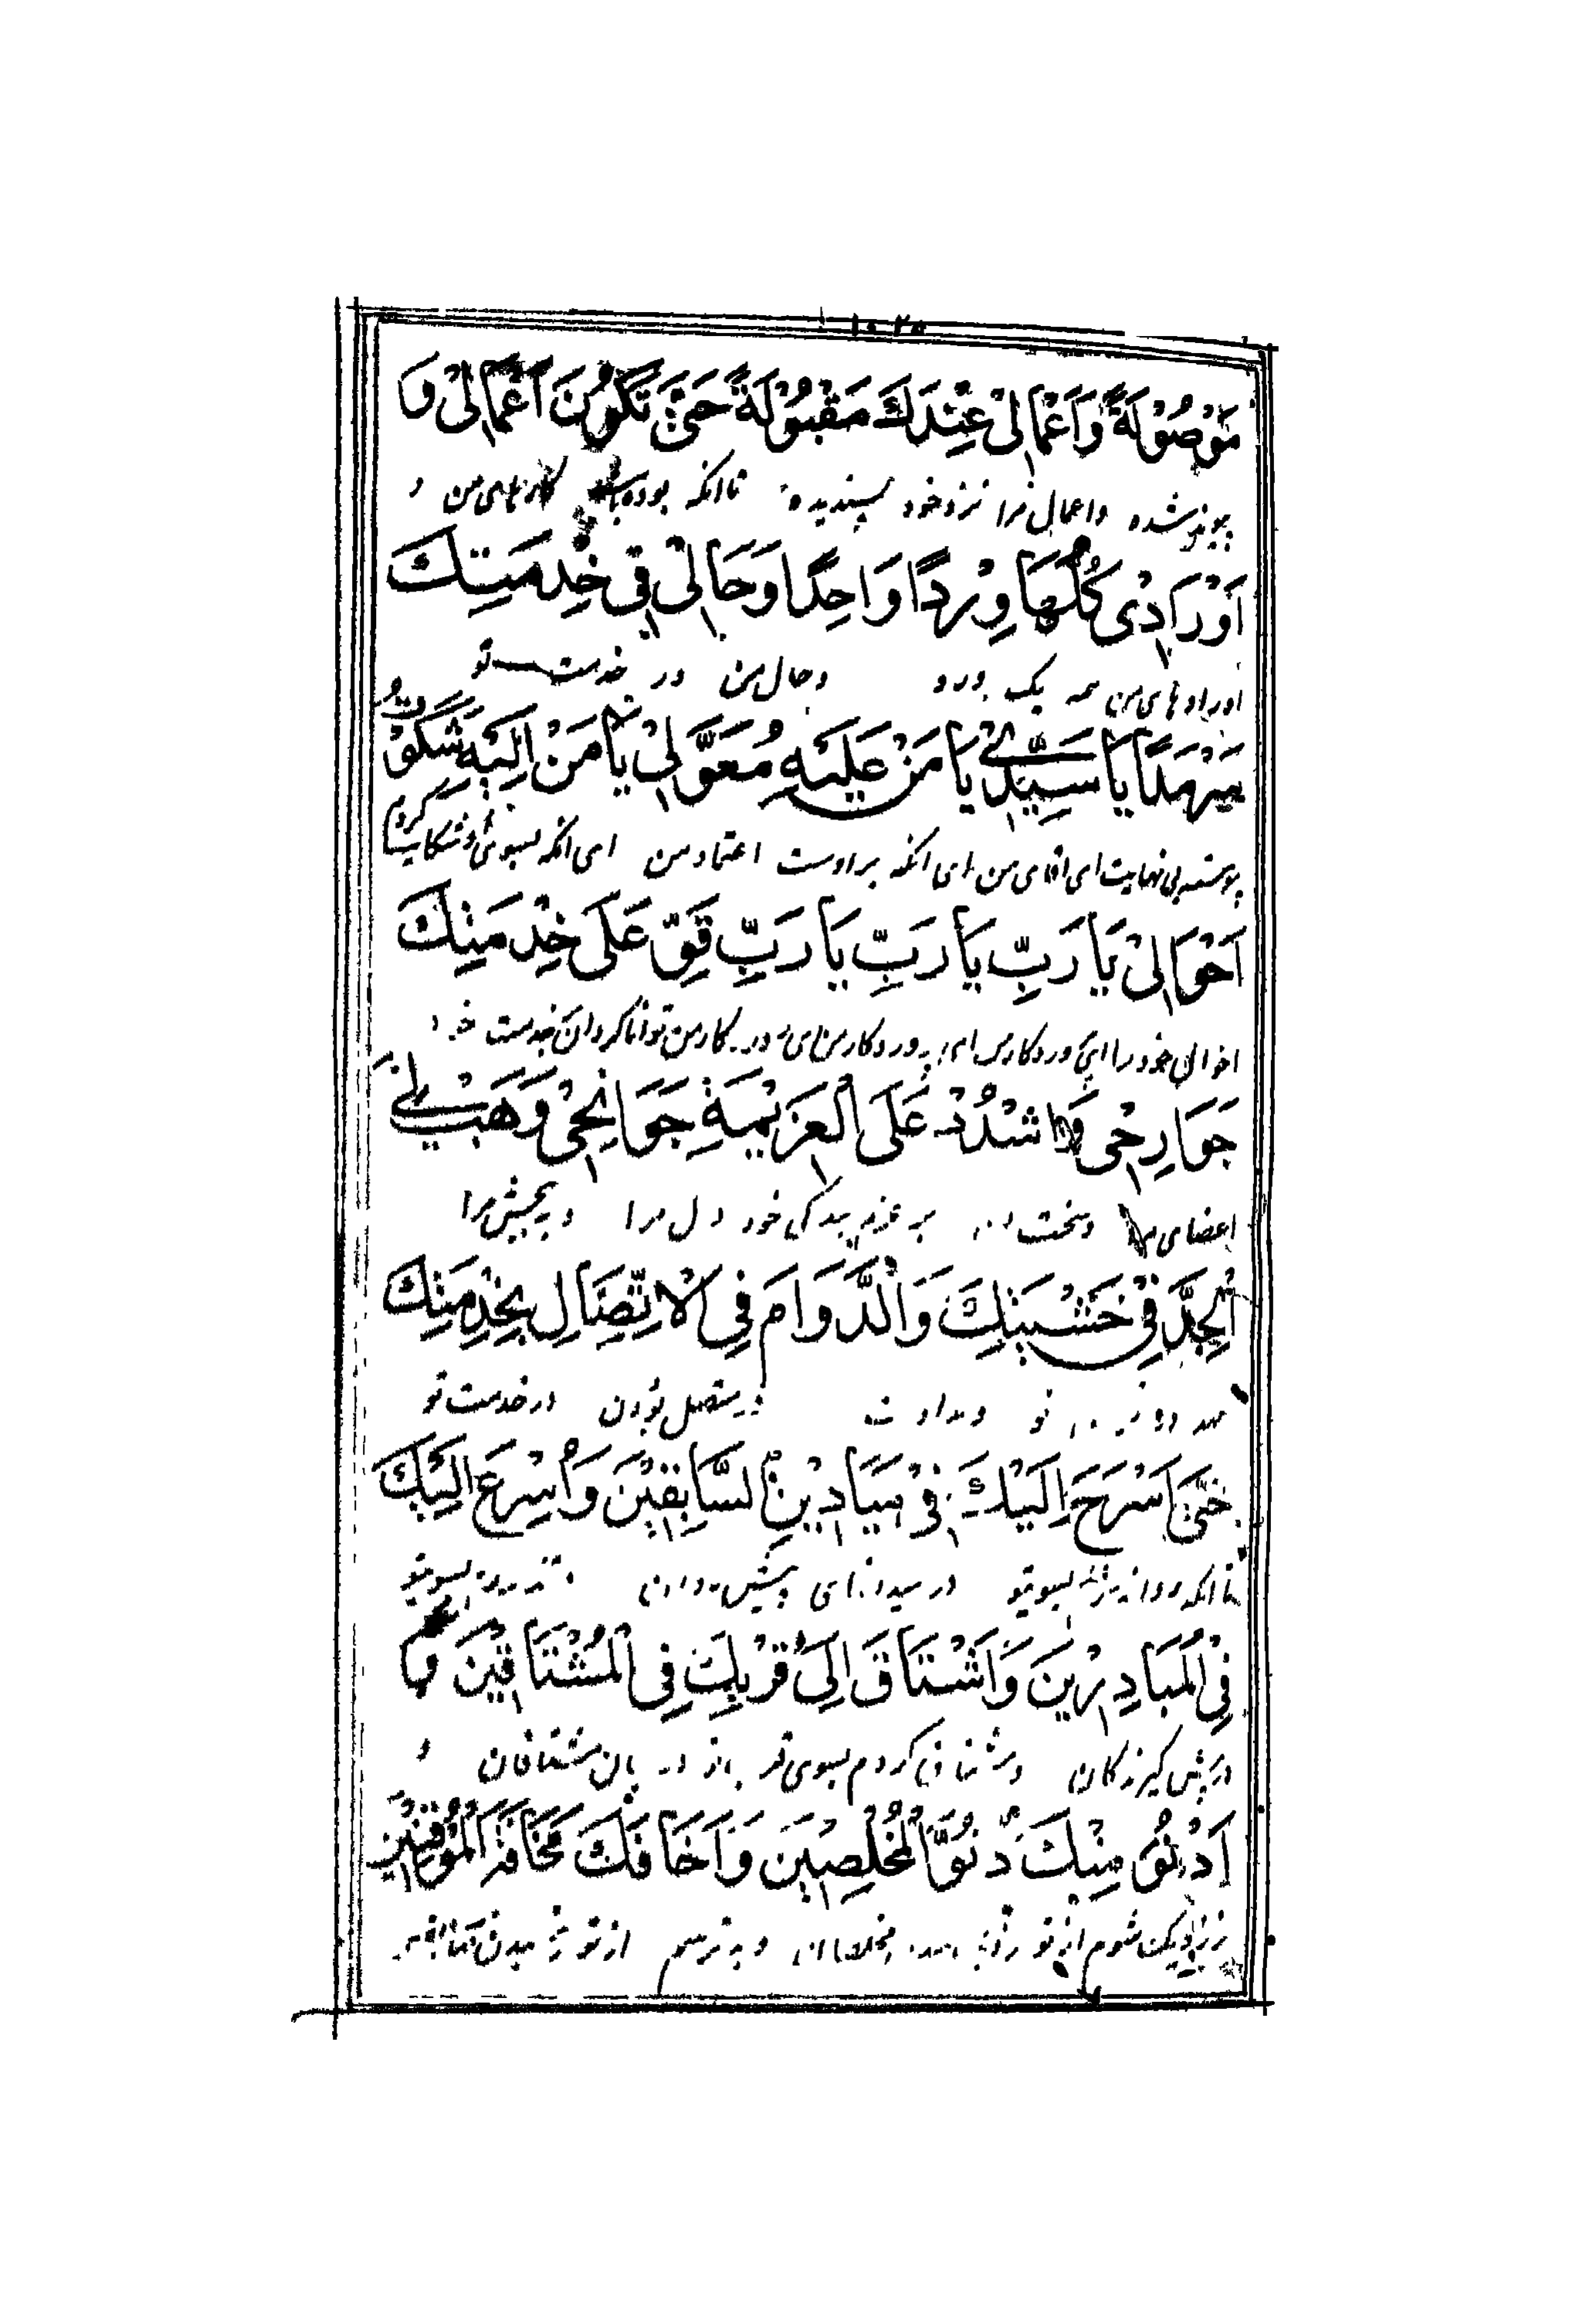 مَوْصُوْلَةً وَاَعْمالىْ عِنْدَكَ مَقْبُوْلَةً حَتّىٰ تَكُوْنَ اَعْمالىْ وَ
پیوند شده واعمال مرا نزد خود پسندیده تا انکه بوده باشد کارهای من و
اَوْرَادْى كُلُّهَا وِرْدًا وَاحِدًا وَحَالىْ فِى خِدْمَتِكَ
اورادهای من همه یک ورد و حال من در خدمت تو
سَرْمَدًا يَا سَيِّدِىْ يَا مَنْ عَلَيْهِ مُعَوَّلىْ يَا مَنْ اِلَيْهِ شَكَوْتُ
پیوسته بی نهایت ای اقای من ای انکه بر اوست اعتماد من ای انکه بسوی او شکایت کردم
اَحْوَالىْ يَا رَبِّ يَا رَبِّ يَا رَبِّ قَوِّ عَلَى خِدْمَتِكَ
احوال خود را ای پروردکار من ای پروردکار من ای پروردکار من توانا کردان بخدمت خود
جَوَارِحْى وَاشْدُدْ عَلَى الْعَزِيْمَةِ جَوَانِحْى وَهَبْ لِىَ
اعضای مرا وسخت بر عزم بندکی خود دل مرا و ببخش مرا
الْجِدَّ فِىْ خَشْيَتِكَ وَالدَّوَامَ فِى الْاِتِّصَالِ بِخِدْمَتِكَ
تو ومداومت در متصل بودن در خدمت تو
حَتّىٰ اَسْرَحَ اِلَيْكَ فِىْ مَيَادِيْنِ السَّابِقِيْنَ وَاُسْرِعَ اِلَيْكَ
تا انکه روانه بسویتو در میدانهای پیش روان بسویتو
فِى الْمُبَادِرِيْنَ وَاَشْتَاقَ اِلىٰ قُرْبِكَ فِى الْمُشْتَاقِيْنَ وَ
در پیش کیرندکان ومشتاق کردم بسوی قرب تو در میان مشتاقان و
اَدْنُوَ مِنْكَ دُنُوَّ الْمُخْلِصِيْنَ وَاَخَافَكَ مَخَافَةَ الْمُوْقِنِيْنَ
نزدیک شوم از تو مخلصان و بترسم از تو